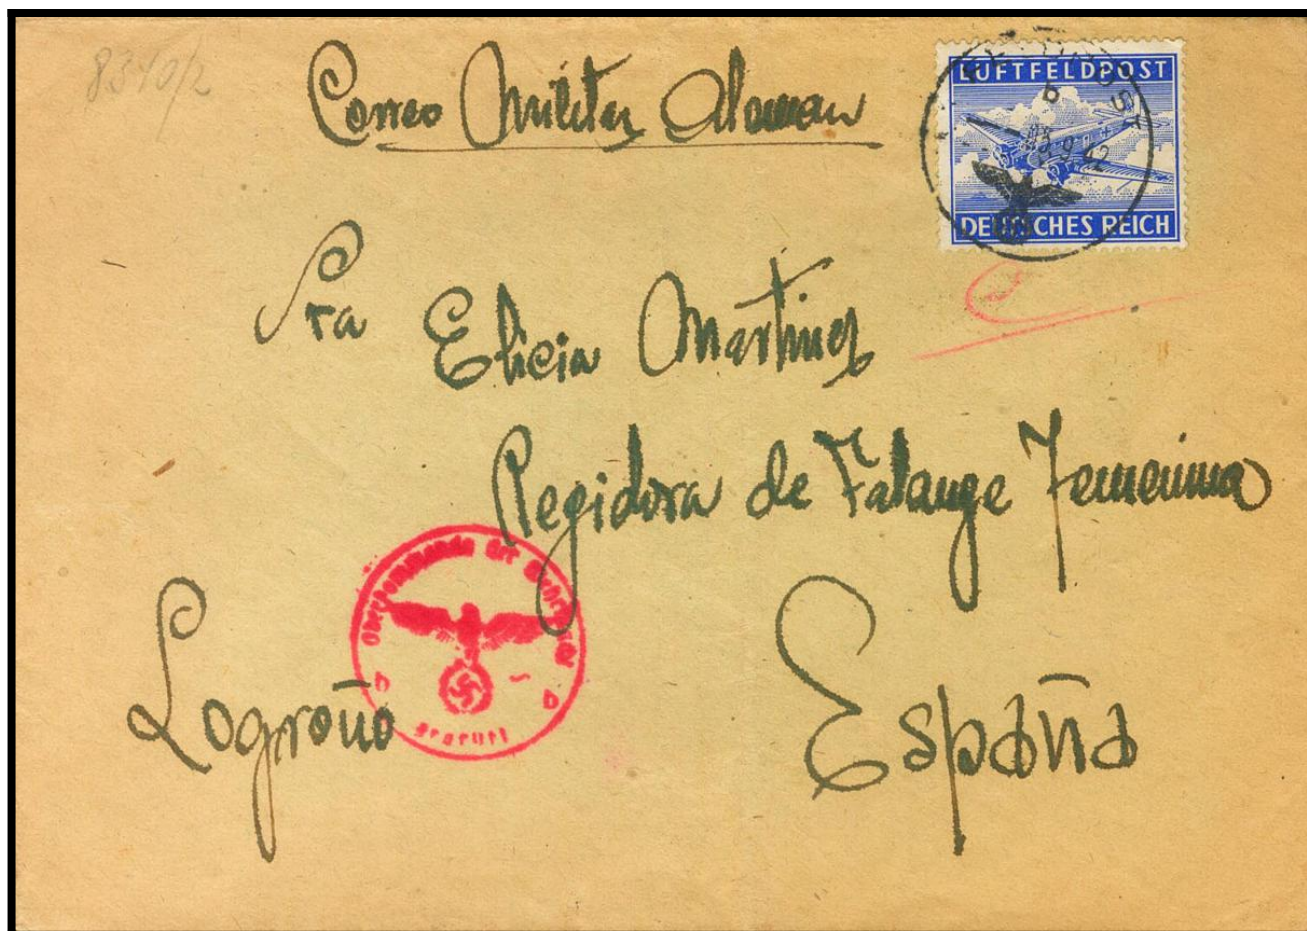 8340/2
Correo Militar Aleman
LUFTFELDPOST
DEUTSCHES REICH
FELDPOST
b
9.42
Sra Elicia Martinez
Regidora de Falange Femenina
Oberkommando der Wehrmacht
b b
geprüft
Logroño
España